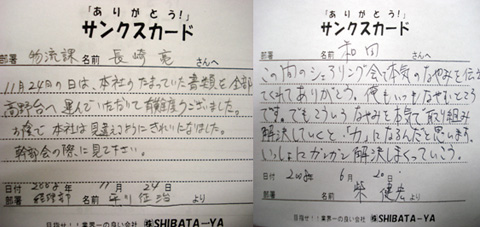 「ありがとう!」
サンクスカード
部署 物流課 名前 長崎 亮 さんへ
11月24日の日は、本社のたまっていた書類を全部
高野台へ運んでいただいて有難度うございました。
お陰で本社は見違えるようにきれいになりました。
幹部会の際に見て下さい。
日付 11月 24日
部署 名前 より
目指せ!!業界一の良い会社 ㈱SHIBATA-YA
「ありがとう!」
サンクスカード
部署 名前 和田 さんへ
この間のシェアリング会で本気のなやみを伝え
てくれてありがとう。俺もいつもなやむところ
です。でもこういうなやみを本気で取り組み
解決していくと、「力」になるんだと思います。
いっしょにガンガン解決しまくっていこう。
日付 6月 20日
部署 名前 柴 健宏 より
目指せ!!業界一の良い会社 ㈱SHIBATA-YA